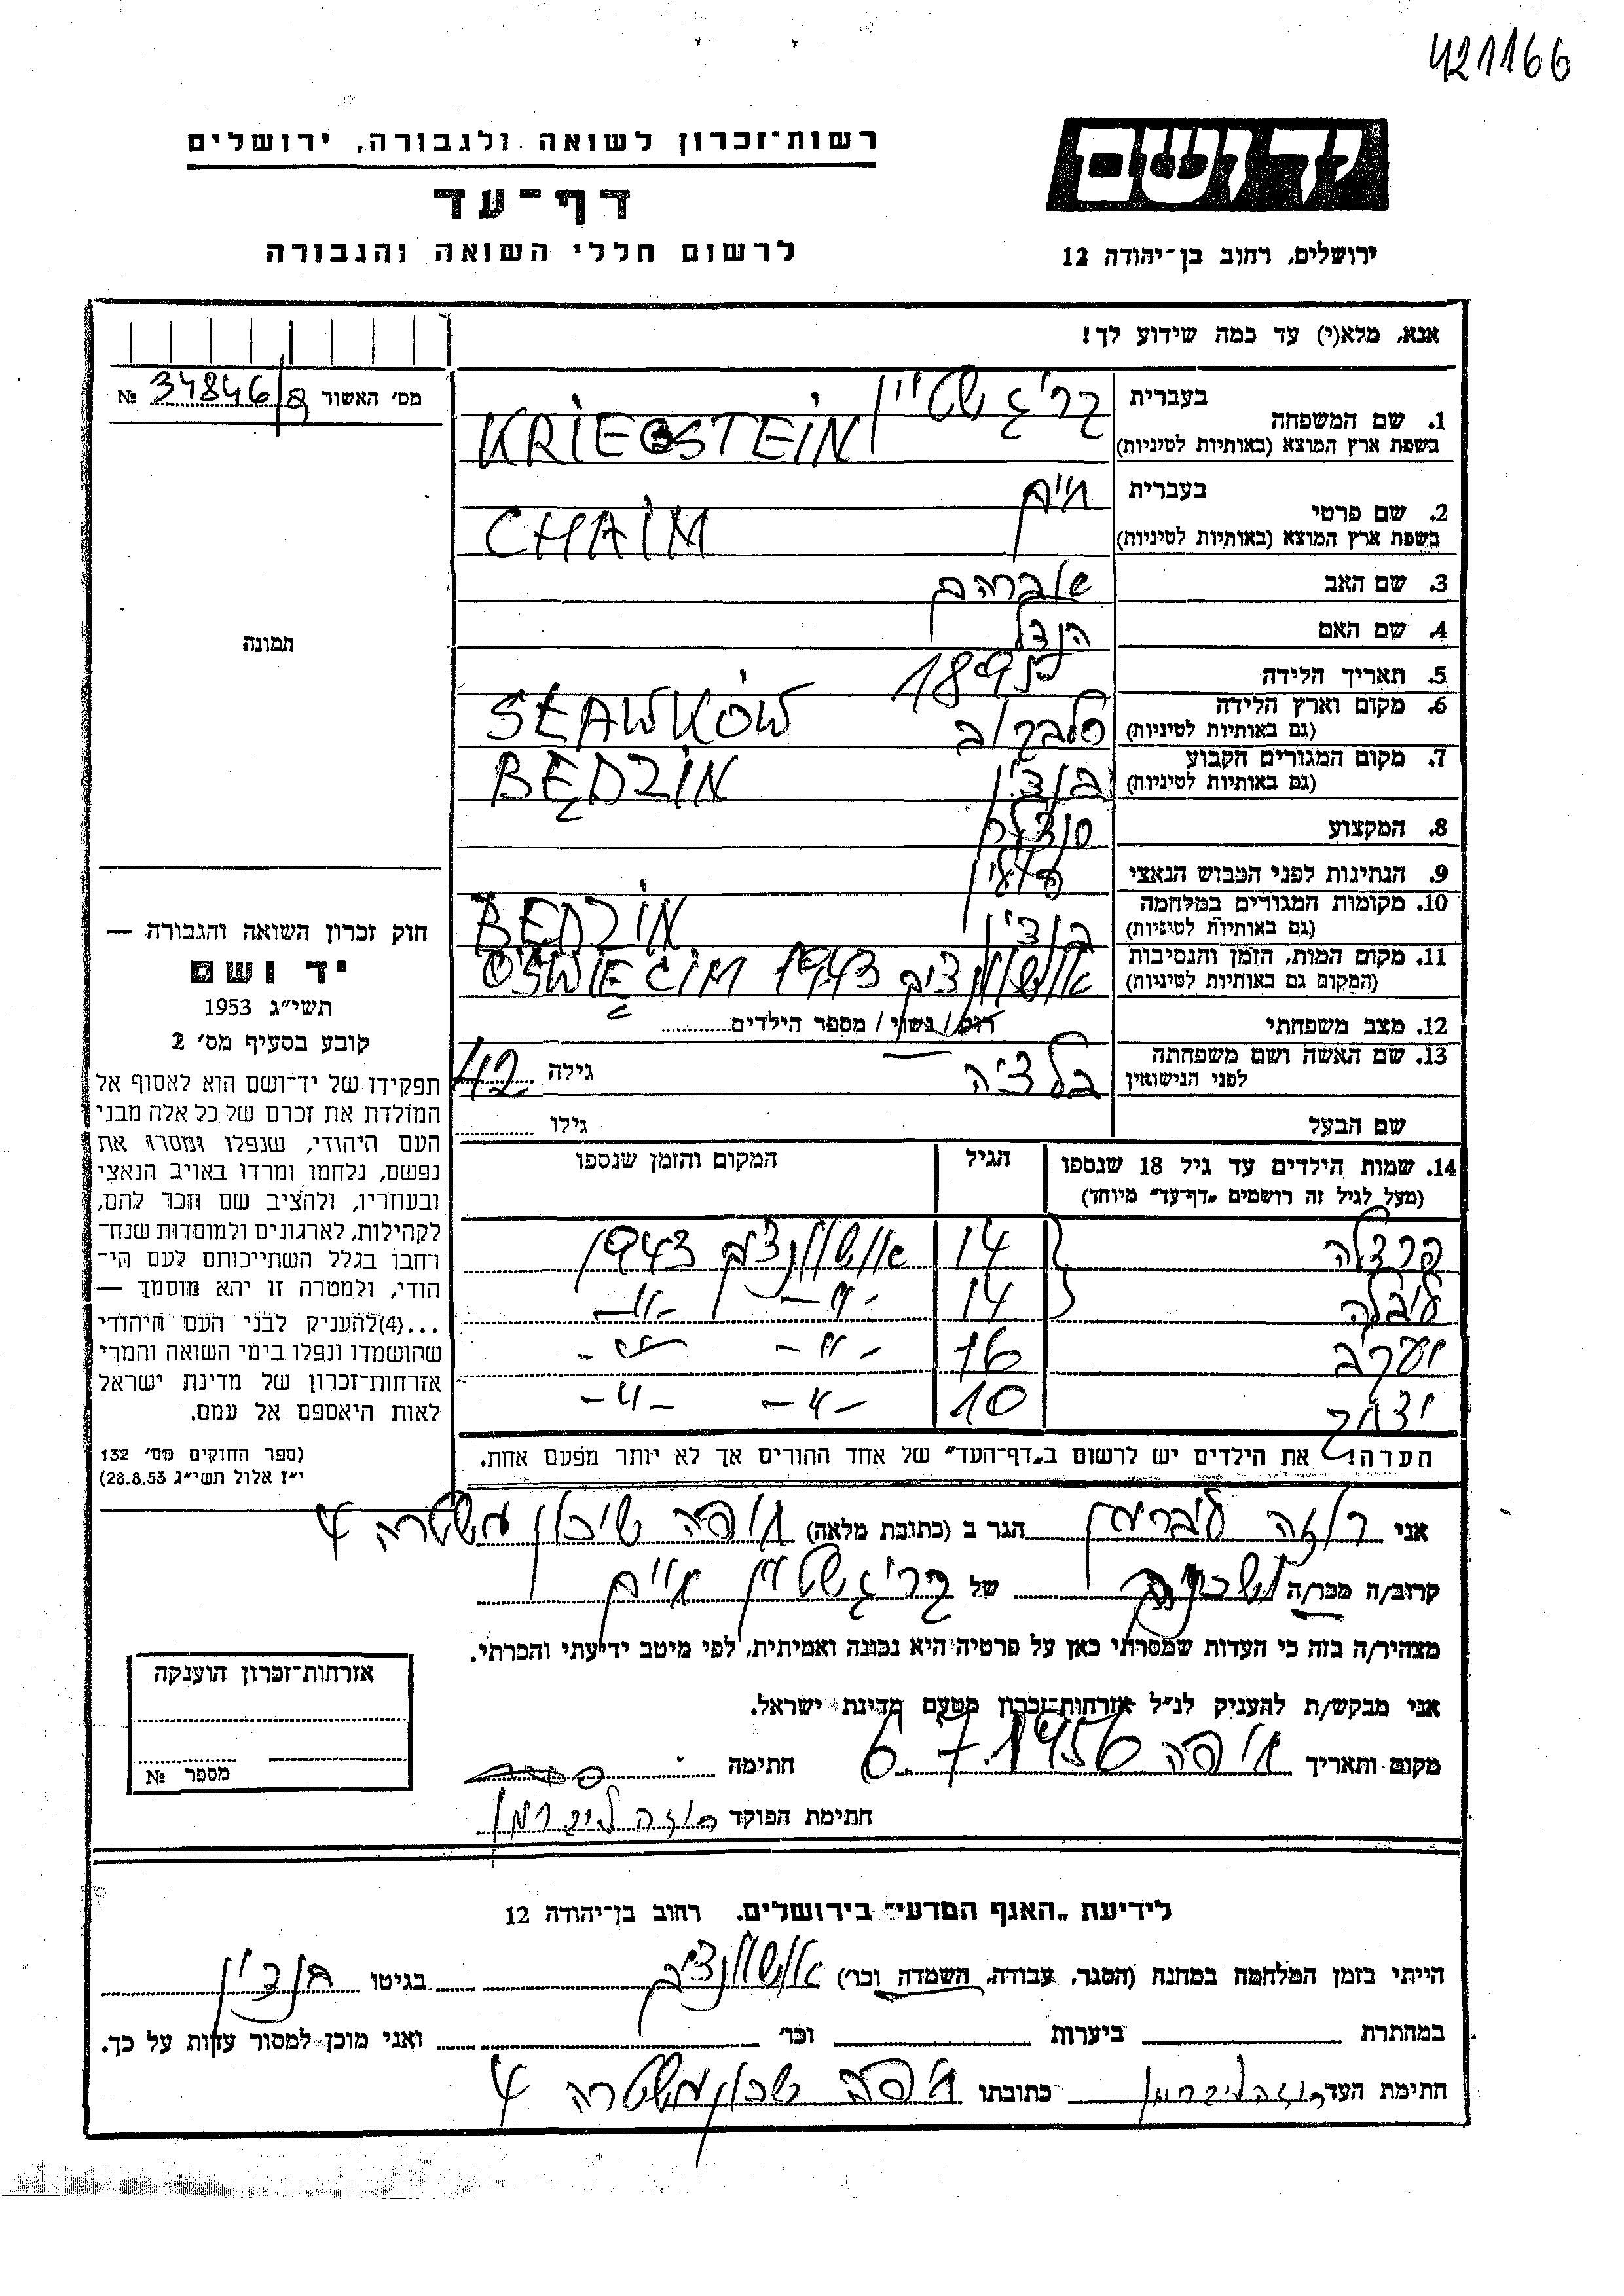 421166
רשות־זכרון לשואה ולגבורה, ירושלים
יד ושם
דף־עד
לרשום חללי השואה והגבורה
ירושלים, רחוב בן־יהודה 12
אנא, מלא(י) עד כמה שידוע לך!
מס׳ האשור 34846/8 №
1. שם המשפחה בעברית קריגשטיין
בשפת ארץ המוצא (באותיות לטיניות) KRIEGSTEIN
2. שם פרטי בעברית חיים
בשפת ארץ המוצא (באותיות לטיניות) CHAIM
3. שם האב אברהם
4. שם האם הנדל
5. תאריך הלידה 1895
6. מקום וארץ הלידה סלבקוב SŁAWKÓW
(גם באותיות לטיניות)
7. מקום המגורים הקבוע בנדין BĘDZIN
(גם באותיות לטיניות)
8. המקצוע סנדלר
9. הנתינות לפני הכבוש הנאצי פולין
10. מקומות המגורים במלחמה בנדין BEDZIN
(גם באותיות לטיניות)
11. מקום המות, הזמן והנסיבות אושוונצים 1943 OŚWIĘCIM
(המקום גם באותיות לטיניות)
12. מצב משפחתי רוק / נשוי / מספר הילדים
13. שם האשה ושם משפחתה לפני הנישואין בלציה גילה 42
שם הבעל גילו
14. שמות הילדים עד גיל 18 שנספו הגיל המקום והזמן שנספו
(מעל לגיל זה רושמים „דף־עד״ מיוחד)
פרדלה 14 אושוונצים 1943
14 -"- -"-
יעקב 16 -"- -"-
יצחק 10 -"- -"-
הערה: את הילדים יש לרשום ב„דף־העד״ של אחד ההורים אך לא יותר מפעם אחת.
תמונה
חוק זכרון השואה והגבורה —
יד ושם
תשי״ג 1953
קובע בסעיף מס׳ 2
תפקידו של יד־ושם הוא לאסוף אל
המולדת את זכרם של כל אלה מבני
העם היהודי, שנפלו ומסרו את
נפשם, נלחמו ומרדו באויב הנאצי
ובעוזריו, ולהציב שם וזכר להם,
לקהילות, לארגונים ולמוסדות שנח־
רחבו בגלל השתייכותם לעם הי־
הודי, ולמטרה זו יהא מוסמך —
...(4)להעניק לבני העם היהודי
שהושמדו ונפלו בימי השואה והמרי
אזרחות־זכרון של מדינת ישראל
לאות היאספם אל עמם.
(ספר החוקים מס׳ 132
י״ז אלול תשי״ג 28.8.53)
אני רוזה ליברמן הגר ב (כתובת מלאה) חיפה שיכון משטרה 4
קרוב/ה מכר/ה של קריגשטיין חיים
מצהיר/ה בזה כי העדות שמסרתי כאן על פרטיה היא נכונה ואמיתית, לפי מיטב ידיעתי והכרתי.
אני מבקש/ת להעניק לנ״ל אזרחות־זכרון מטעם מדינת ישראל.
מקום ותאריך חיפה 6.7.1956 חתימה
חתימת הפוקד רוזה ליברמן
אזרחות־זכרון הוענקה
מספר №
לידיעת „האגף המדעי״ בירושלים, רחוב בן־יהודה 12
הייתי בזמן המלחמה במחנה (הסגר, עבודה, השמדה וכו׳) אושוונצים בגיטו בנדין
במחתרת ביערות וכו׳ ואני מוכן למסור עדות על כך.
חתימת העד רוזה ליברמן כתובתו חיפה שכון משטרה 4